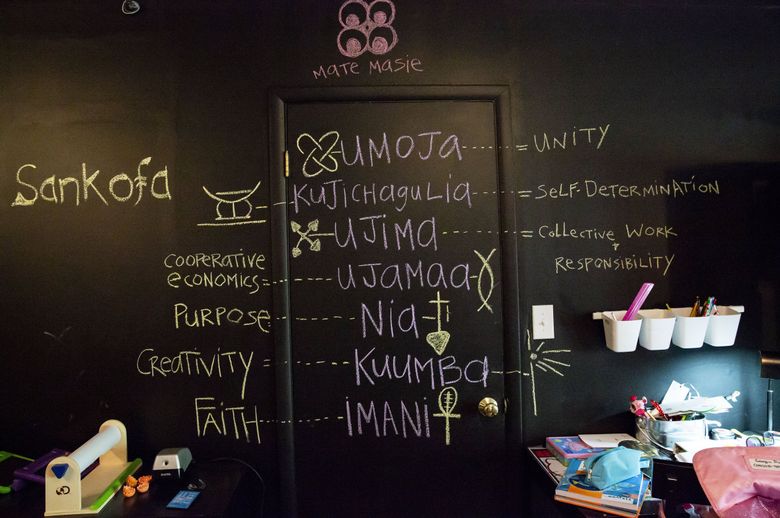 MATE MASIE
Sankofa
UMOJA = UNITY
KUJICHAGULIA = SELF-DETERMINATION
UJIMA = COLLECTIVE WORK
+ RESPONSIBILITY
COOPERATIVE
ECONOMICS UJAMAA
PURPOSE NIA
CREATIVITY KUUMBA
FAITH IMANI